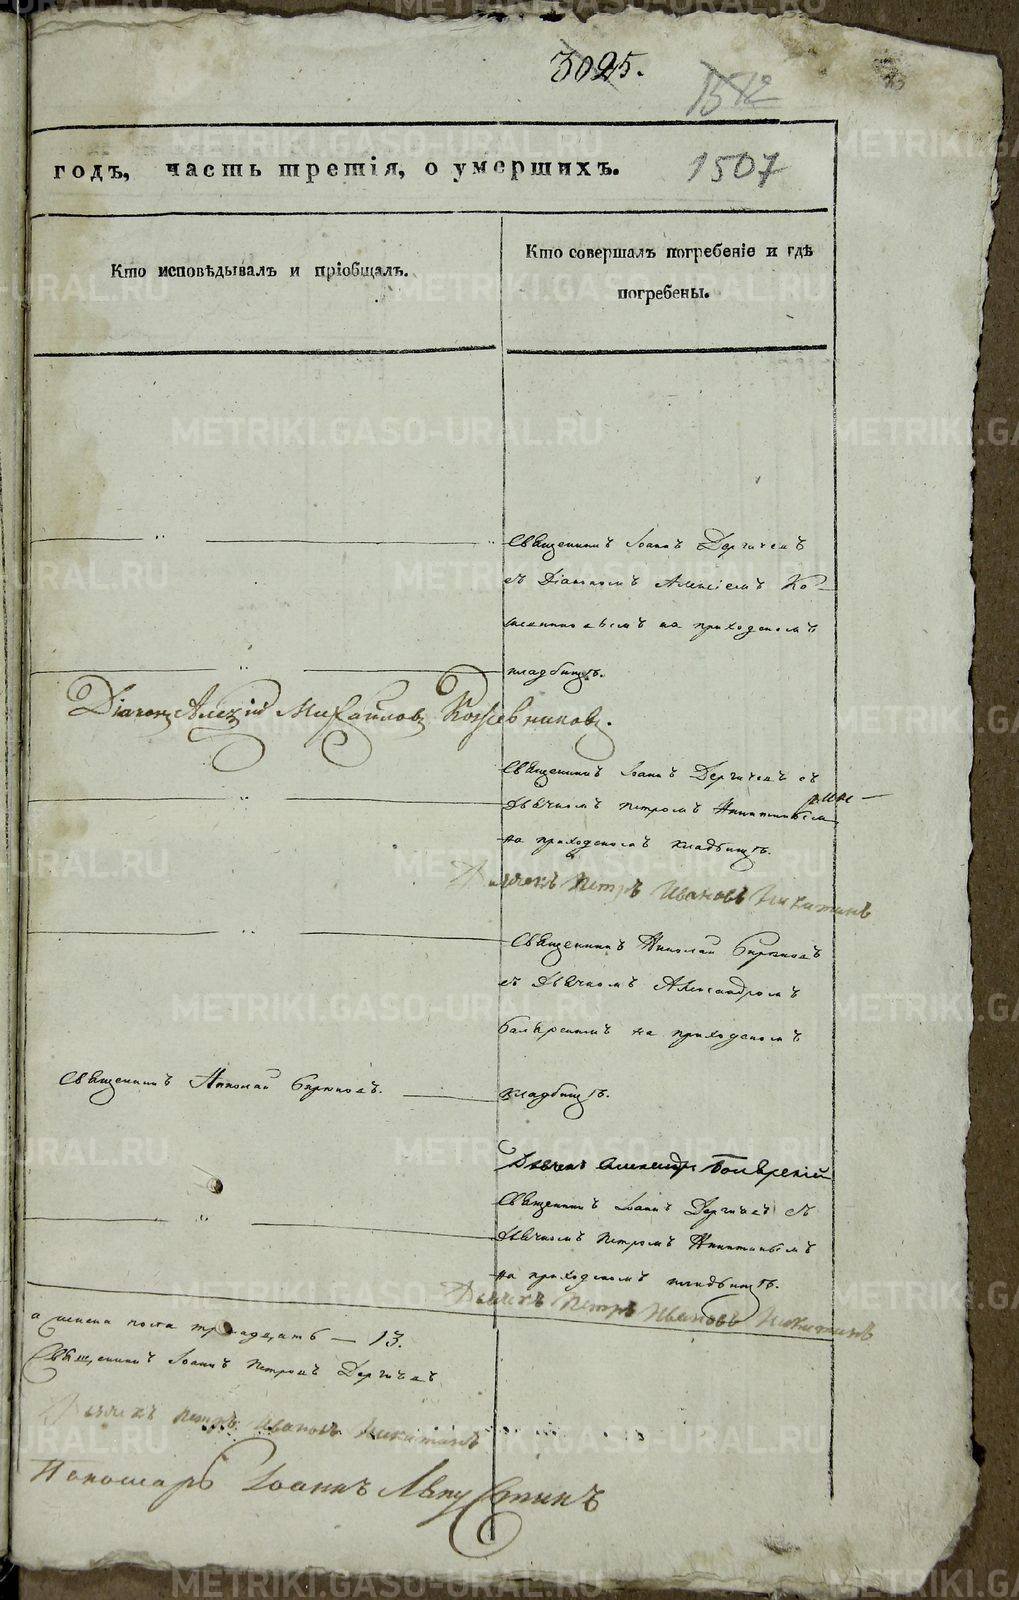 3025.
1512
1507
годъ, часть третія, о умершихъ.
Кто исповѣдывалъ и пріобщалъ.
Кто совершалъ погребеніе и гдѣ
погребены.
Священникъ Іоаннъ Дергачевъ
съ Діакономъ Алексіемъ Ко-
жевниковымъ на приходскомъ
кладбищѣ.
Діаконъ Алексій Михайловъ Кожевниковъ.
Священникъ Іоаннъ Дергачевъ съ
Дьячкомъ Петромъ Никитинымъ
на приходскомъ кладбищѣ.
Дьячекъ Петръ Ивановъ Никитинъ
Священникъ Николай Бирюковъ
съ Дьячкомъ Александромъ
на приходскомъ
Священникъ Николай Бирюковъ.
кладбищѣ.
Дьячекъ Александръ
Священникъ Іоаннъ Дергачевъ съ
Дьячкомъ Петромъ Никитинымъ
на приходскомъ кладбищѣ.
Дьячекъ Петръ Ивановъ Никитинъ
тринадцать — 13.
Священникъ Іоаннъ Петровъ Дергачевъ
Дьячекъ Петръ Ивановъ Никитинъ
Пономарь Іоаннъ
METRIKI.GASO-URAL.RU